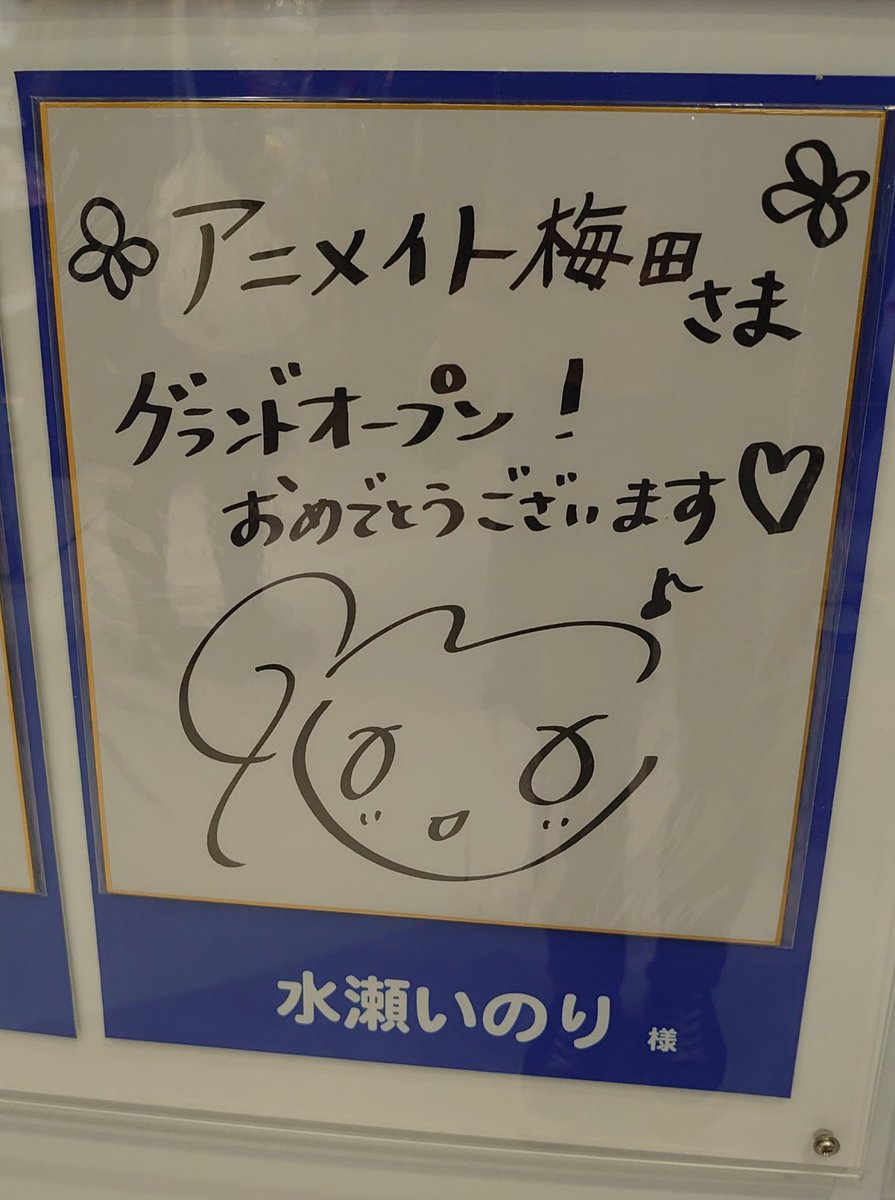 アニメイト梅田さま
グランドオープン！
おめでとうございます♡
水瀬いのり 様